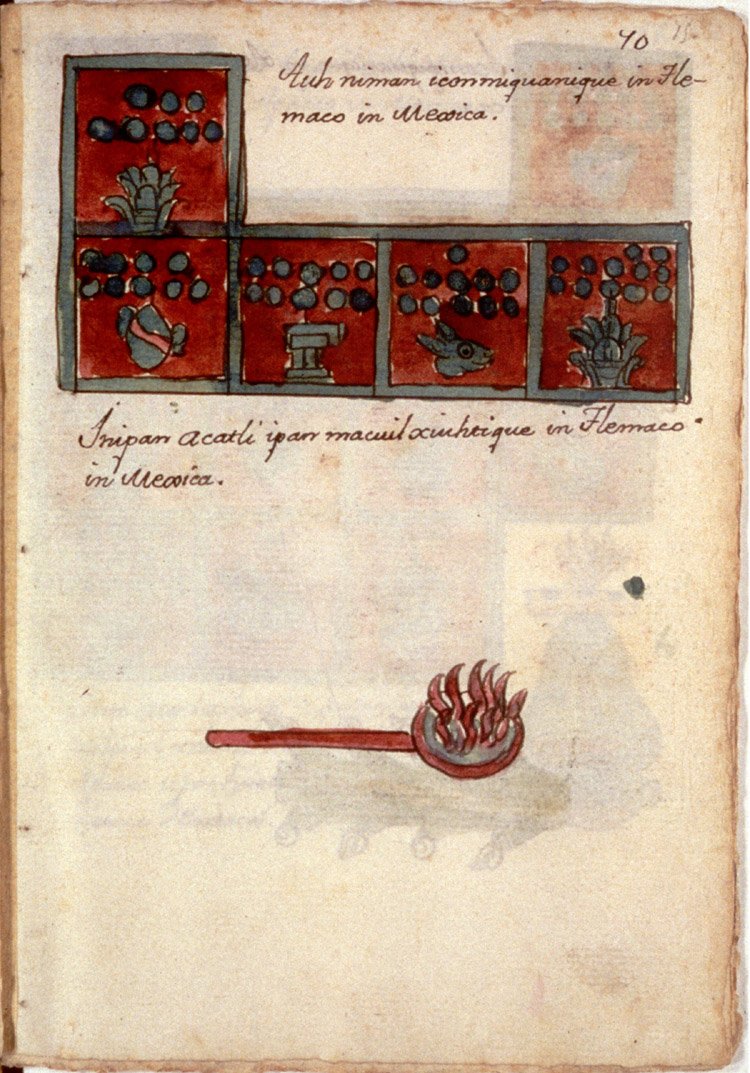 10
Auh niman iconmiquanique in Tle-
maco in Mexica.
Inipan acatli ipan macuil xiuhtique in Tlemaco
in Mexica.